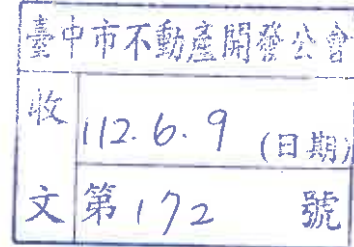 臺中市不動產開發公會
收文
112.6.9 (日期)
第172號